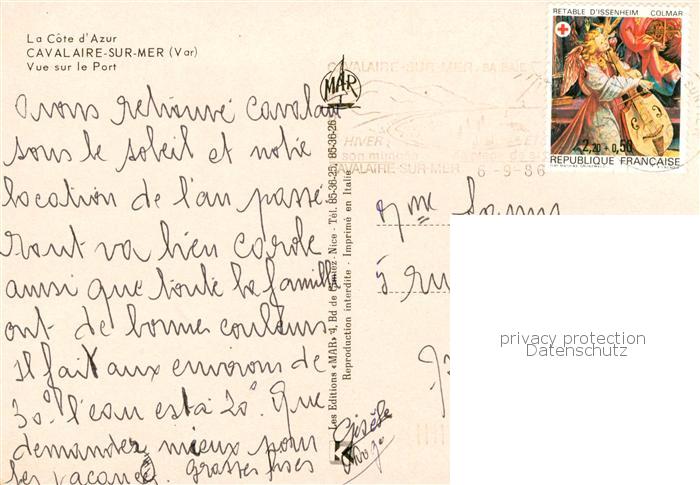 La Côte d'Azur
CAVALAIRE-SUR-MER (Var)
Vue sur le Port
avons retrouvé Cavalaire
sous le soleil et notre
location de l'an passé
Tout va bien Carole
ainsi que toute la famille
ont de bonnes couleurs
il fait aux environs de
30°. l'eau est à 20°. Que
demander mieux pour
les vacances. grosses bises
Gisèle
MAR
Les Editions «MAR» 4, Bd de Cimiez - Nice - Tél. 85-36-25, 85-36-26
Reproduction interdite - Imprimé en Italie
CAVALAIRE-SUR-MER SA BAIE
HIVER
son
CAVALAIRE-SUR-MER
6-9-86
RETABLE D'ISSENHEIM COLMAR
2,20+0,50
RÉPUBLIQUE FRANÇAISE
Mme
5 rue
privacy protection
Datenschutz